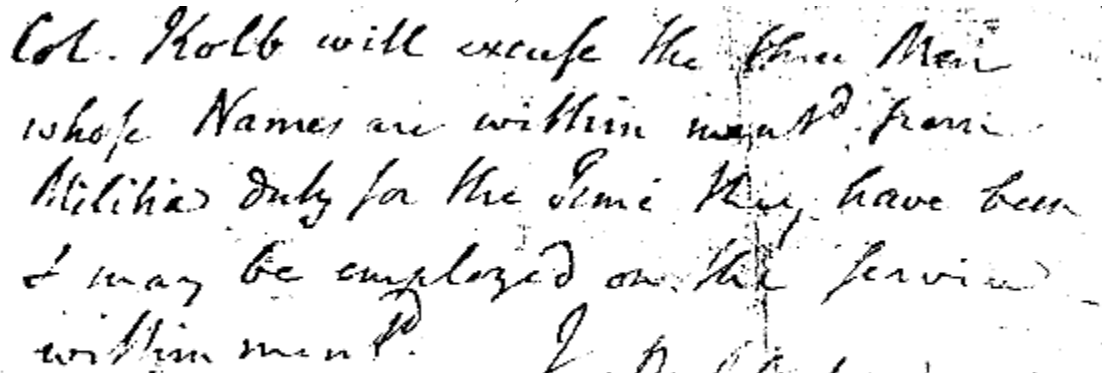 Col. Kolb will excuse the three Men
whose Names are within ment^d. from
Militia duty for the Time they have been
& may be employed on the service
within ment^d. J